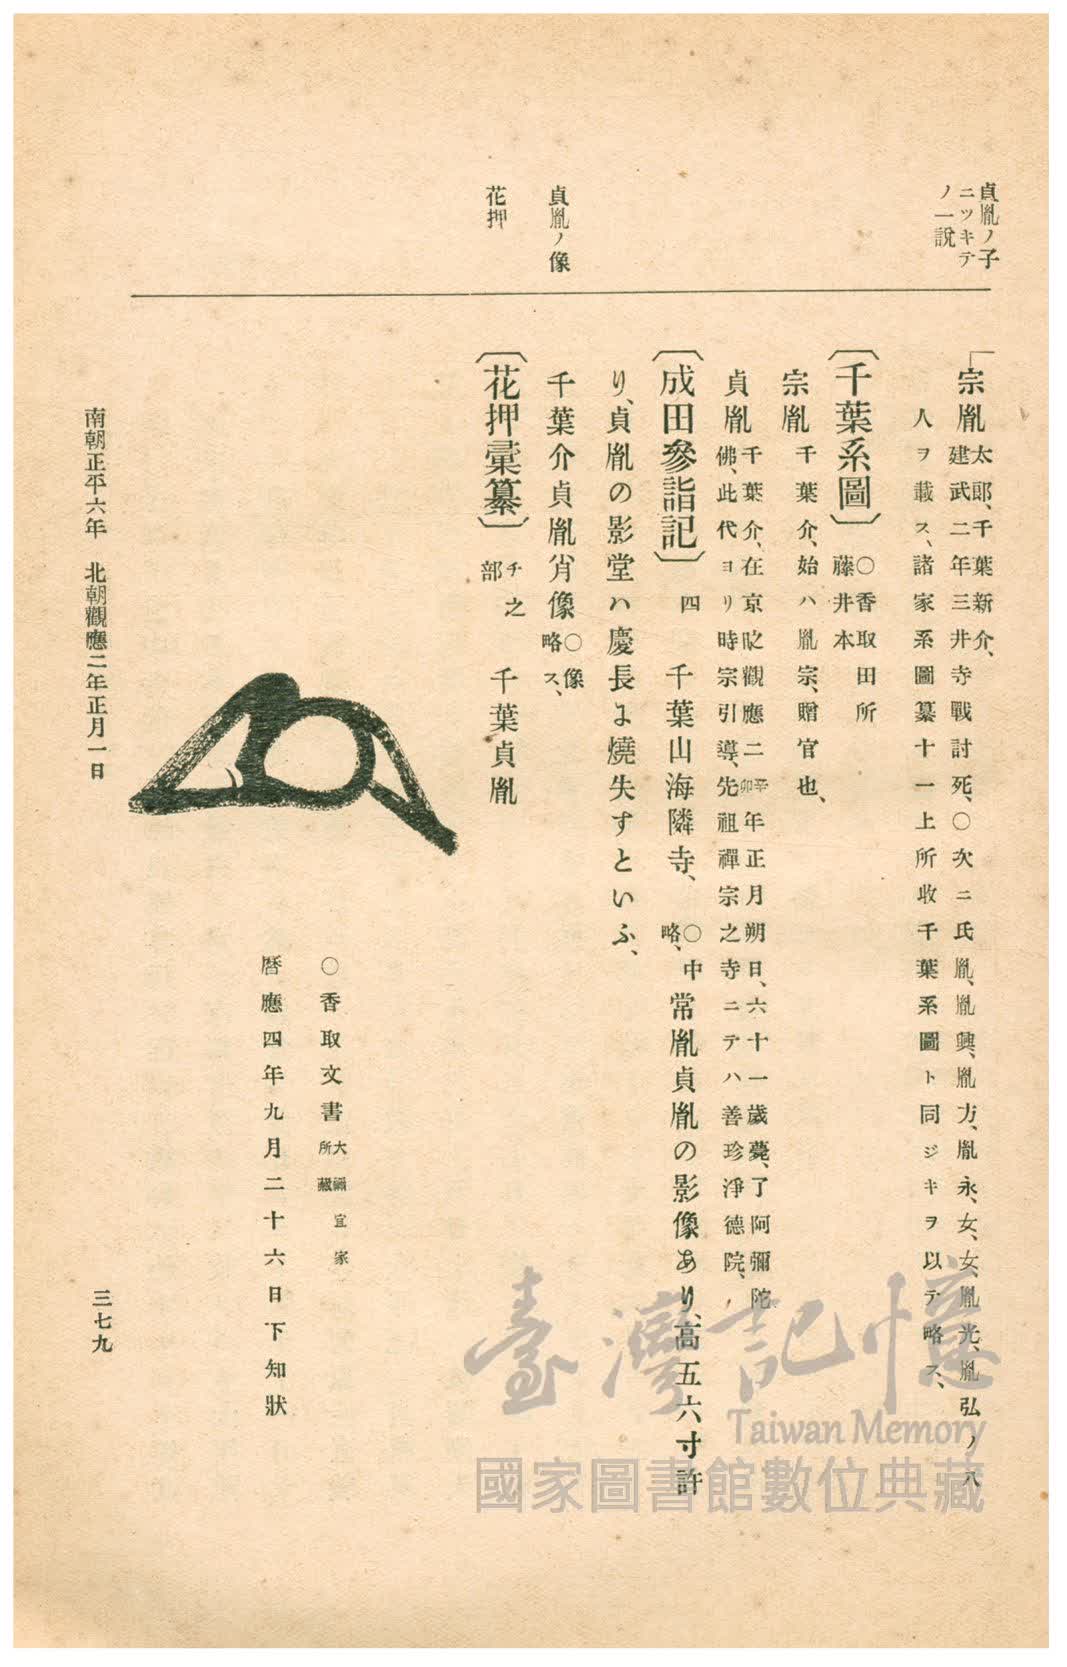 貞胤ノ子
ニツキテ
ノ一說
貞胤ノ像
花押
宗胤 太郎、千葉新介、
建武二年三井寺戰討死、○次ニ氏胤、胤興、胤方、胤永、女、女、胤光、胤弘ノ八
人ヲ載ス、諸家系圖纂十一上所收千葉系圖ト同ジキヲ以テ略ス、
〔千葉系圖〕 ○香取田所
藤井本
宗胤 千葉介、始ハ胤宗、贈官也、
貞胤 千葉介、在京时觀應二辛卯年正月朔日、六十一歲薨、了阿彌陀
佛、此代ヨリ時宗引導、先祖禪宗之寺ニテハ善珍淨德院、
〔成田參詣記〕 四 千葉山海隣寺、○中略、常胤貞胤の影像あり、高五六寸許
り、貞胤の影堂ハ慶長に燒失すといふ、
千葉介貞胤肖像 ○像略ス、
〔花押彙纂〕 チ之部 千葉貞胤
○香取文書 大禰宜家所藏
曆應四年九月二十六日下知狀
南朝正平六年 北朝觀應二年正月一日
三七九
臺灣記憶
Taiwan Memory
國家圖書館數位典藏